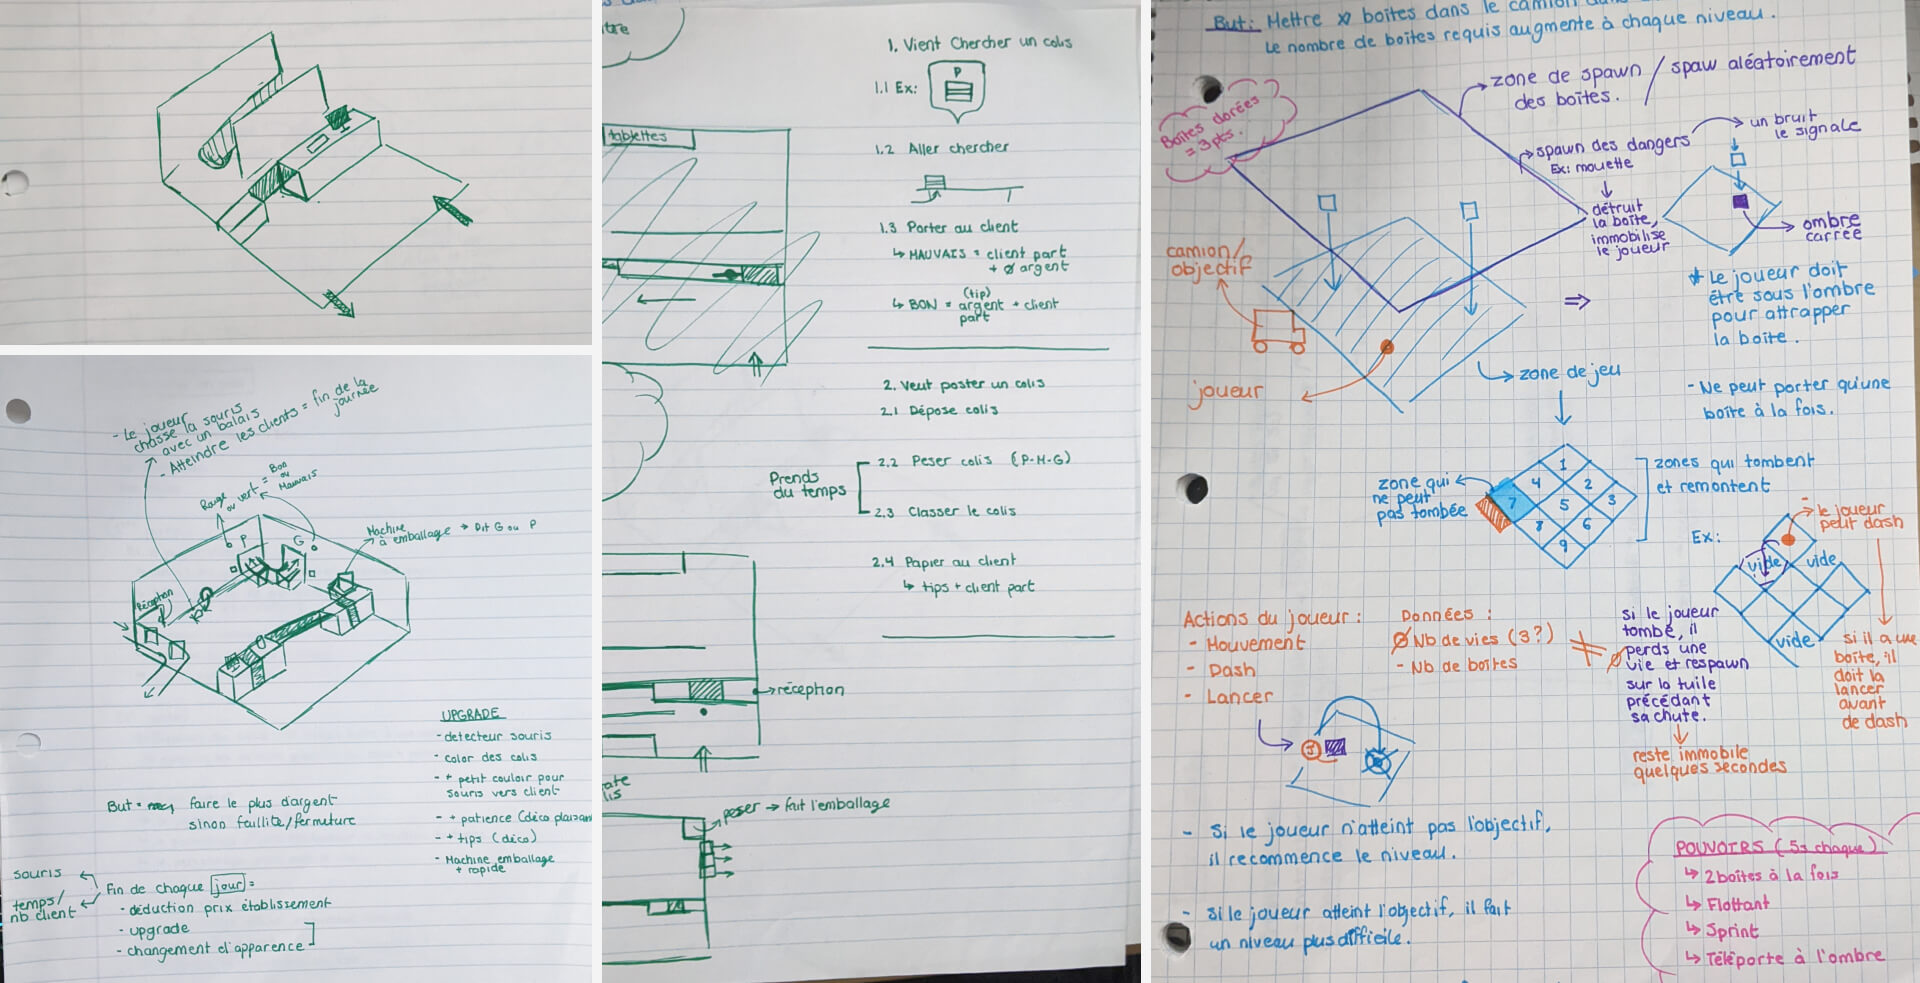 - Le joueur
chasse la souris
avec un balais
- Atteindre les clients = fin de la
journée
Rouge
ou vert =
Bon
ou
Mauvais
P
G
Machine
à emballage → Dit G ou P
Réception
UPGRADE
- detecteur souris
- color des colis
- + petit couloir pour
souris vers client
- + patience (déco plaisan
- + tips (déco)
- Machine emballage
+ rapide
But = faire le plus d'argent
sinon faillite/fermeture
souris
temps/
nb client
Fin de chaque jour =
- déduction prix établissement
- upgrade
- changement d'apparence
tre
tablettes
1. Vient Chercher un colis
1.1 Ex:
P
1.2 Aller chercher
1.3 Porter au client
↳ MAUVAIS = client part
+ Ø argent
↳ BON = argent + client
(tip)
part
2. Veut poster un colis
2.1 Dépose colis
Prends
du temps
2.2 Peser colis (P-M-G)
2.3 Classer le colis
2.4 Papier au client
↳ tips + client part
→ réception
ate
lis
peser → fait l'emballage
But: Mettre X boîtes dans le camion dans
Le nombre de boîtes requis augmente à chaque niveau.
Boîtes dorées
= 3 pts.
zone de spawn / spaw aléatoirement
des boîtes.
spawn des dangers
Ex: mouette
détruit
la boîte,
immobilise
le joueur
un bruit
le signale
ombre
carrée
camion/
objectif
joueur
zone de jeu
* Le joueur doit
être sous l'ombre
pour attrapper
la boîte.
- Ne peut porter qu'une
boîte à la fois.
zone qui
ne peut
pas tombée
1
4 2
7 5 3
8 6
9
zones qui tombent
et remontent
Ex:
- le joueur
peut dash
vide
vide
vide
si il a une
boîte, il
doit la
lancer
avant
de dash
Actions du joueur :
- Mouvement
- Dash
- Lancer
Données :
Ø Nb de vies (3?)
- Nb de boîtes
si le joueur
tombe, il
perds une
vie et respawn
sur la tuile
précédant
sa chute.
reste immobile
quelques secondes
- Si le joueur n'atteint pas l'objectif,
il recommence le niveau.
- Si le joueur atteint l'objectif, il fait
un niveau plus difficile.
POUVOIRS (5s chaque)
↳ 2 boîtes à la fois
↳ Flottant
↳ Sprint
↳ Téléporte à l'ombre